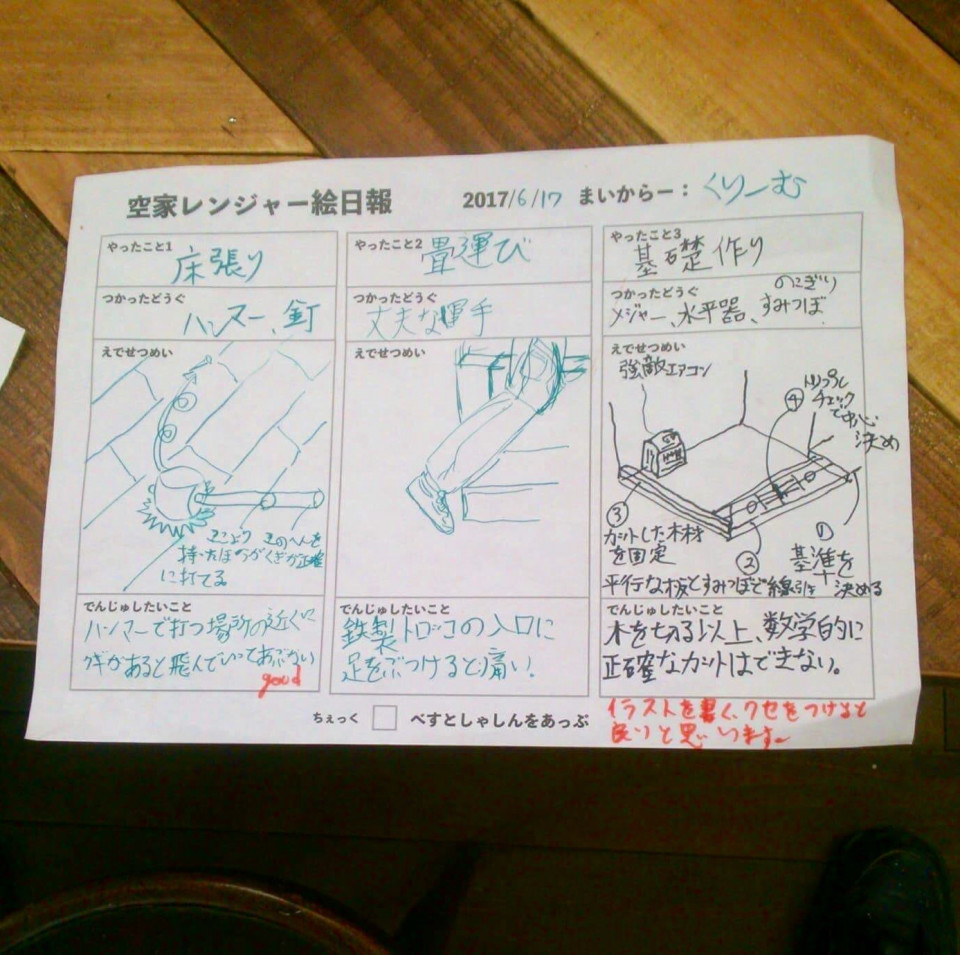 空家レンジャー絵日報
2017/6/17 まいからー：くりーむ
やったこと1
床張り
つかったどうぐ
ハンマー、釘
えでせつめい
ここより このへんを
持ったほうがくぎが正確
に打てる。
でんじゅしたいこと
ハンマーで打つ場所の近くに
クギがあると飛んでいってあぶない
good
やったこと2
畳運び
つかったどうぐ
丈夫な軍手
えでせつめい
でんじゅしたいこと
鉄製トロッコの入口に
足をぶつけると痛い!
やったこと3
基礎作り
つかったどうぐ
のこぎり
メジャー、水平器、すみつぼ
えでせつめい
強敵エアコン
④
トリプル
チェック
で中心
決め
③
カットした木材
を固定
②
平行な板とすみつぼで線引き
①
基準を
決める
でんじゅしたいこと
木を切る以上、数学的に
正確なカットはできない。
ちぇっく
べすとしゃしんをあっぷ
イラストを書く、クセをつけると
良いと思います。